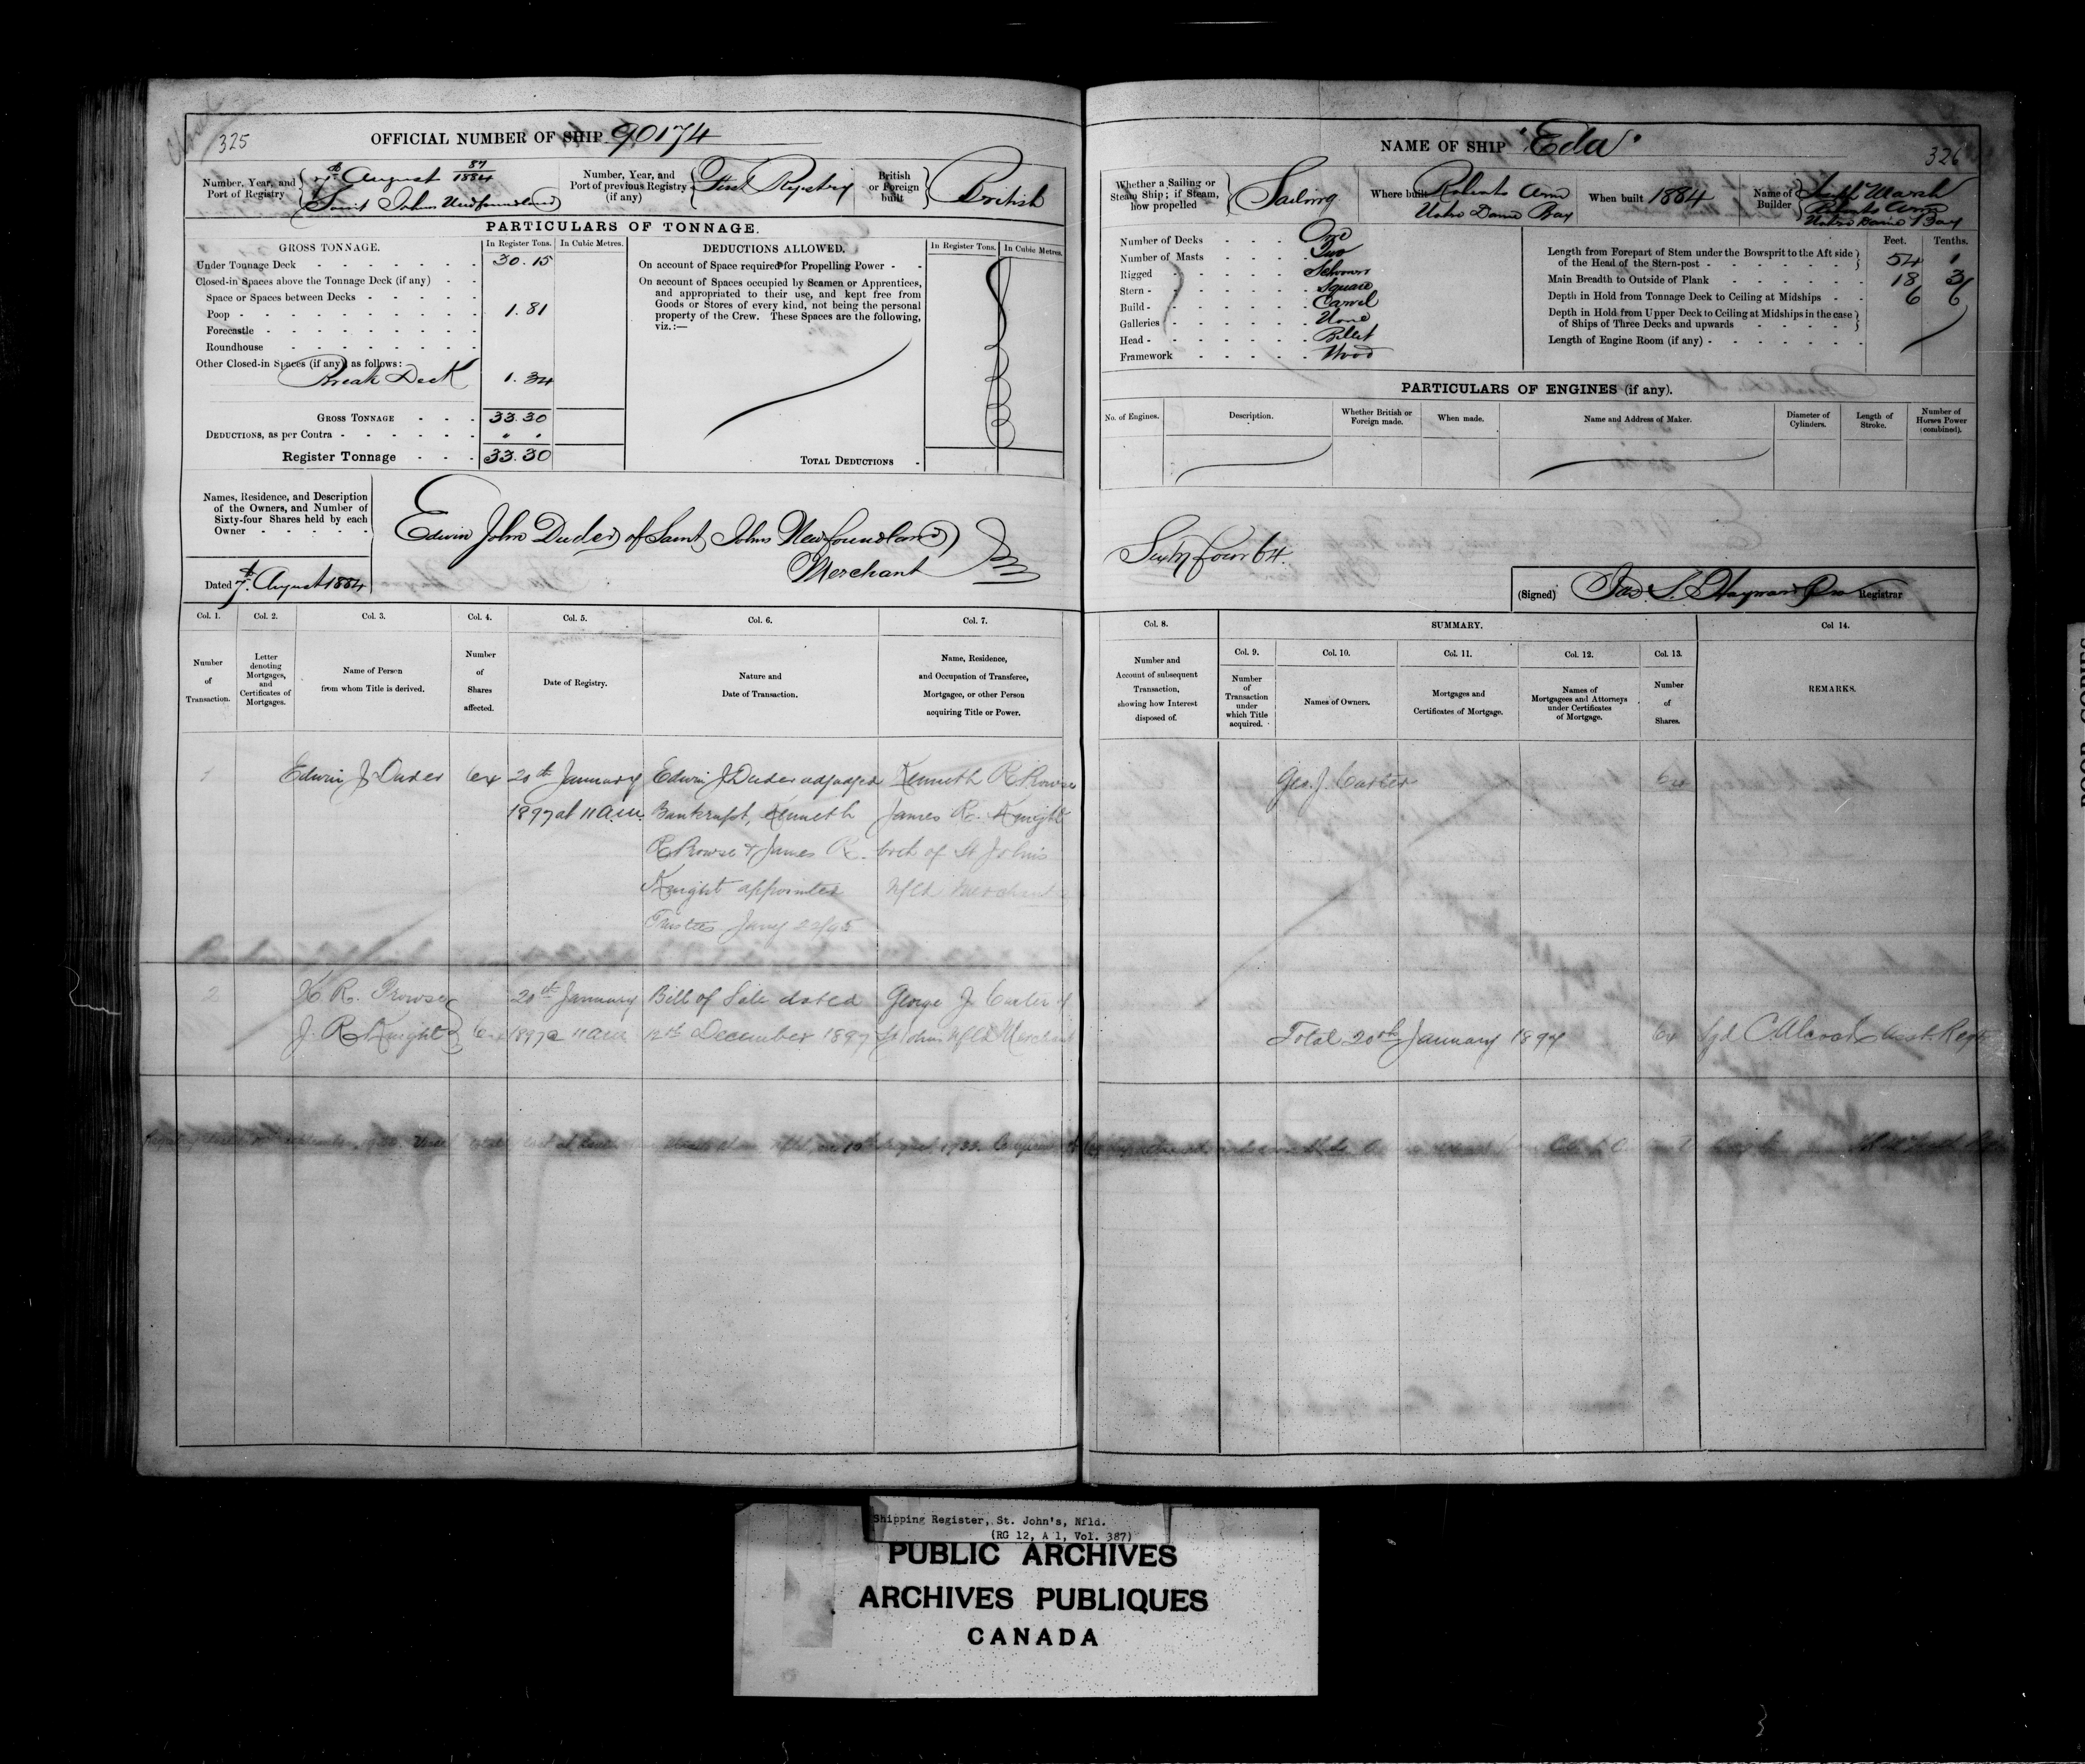 325
OFFICIAL NUMBER OF SHIP 90174
Number, Year, and Port of Registry
7th August 87/1884
Saint Johns Newfoundland
Number, Year, and Port of previous Registry (if any)
First Registry
British or Foreign built
British
PARTICULARS OF TONNAGE.
GROSS TONNAGE.
In Register Tons. In Cubic Metres.
Under Tonnage Deck 30.15
Closed-in Spaces above the Tonnage Deck (if any)
Space or Spaces between Decks
Poop 1.81
Forecastle
Roundhouse
Other Closed-in Spaces (if any) as follows:
Break Deck 1.34
GROSS TONNAGE 33.30
DEDUCTIONS, as per Contra
Register Tonnage 33.30
DEDUCTIONS ALLOWED.
In Register Tons. In Cubic Metres.
On account of Space required for Propelling Power
On account of Spaces occupied by Seamen or Apprentices,
and appropriated to their use, and kept free from
Goods or Stores of every kind, not being the personal
property of the Crew. These Spaces are the following,
viz.:—
TOTAL DEDUCTIONS
Names, Residence, and Description
of the Owners, and Number of
Sixty-four Shares held by each
Owner
Edwin John Duder of Saint Johns Newfoundland
Merchant
Dated 7th August 1884
Col. 1. Col. 2. Col. 3. Col. 4. Col. 5. Col. 6. Col. 7.
Number of Transaction.
Letter denoting Mortgages, and Certificates of Mortgages.
Name of Person from whom Title is derived.
Number of Shares affected.
Date of Registry.
Nature and Date of Transaction.
Name, Residence, and Occupation of Transferee, Mortgagee, or other Person acquiring Title or Power.
1 Edwin J Duder 64 20th January Edwin J Duder adjudged Kenneth R Prowse
1897 at 11 am Bankrupt, Kenneth James R. Knight
R Prowse & James R. both of St Johns
Knight appointed Nfld Merchants
Trustees Jany
2 K R. Prowse 20th January Bill of Sale dated George J Carter of
J. R Knight 64 1897 11 am 12th December 1897 St Johns Nfld Merchant
NAME OF SHIP "Eda"
326
Whether a Sailing or Steam Ship; if Steam, how propelled
Sailing
Where built Roberts Arm
Notre Dame Bay
When built 1884
Name of Builder
Marsh
Roberts Arm
Notre Dame Bay
Number of Decks One
Number of Masts Two
Rigged Schooner
Stern Square
Build Carvel
Galleries None
Head Billet
Framework Wood
Feet. Tenths.
Length from Forepart of Stem under the Bowsprit to the Aft side of the Head of the Stern-post 54 1
Main Breadth to Outside of Plank 18 3
Depth in Hold from Tonnage Deck to Ceiling at Midships 6 6
Depth in Hold from Upper Deck to Ceiling at Midships in the case of Ships of Three Decks and upwards
Length of Engine Room (if any)
PARTICULARS OF ENGINES (if any).
No. of Engines. Description. Whether British or Foreign made. When made. Name and Address of Maker. Diameter of Cylinders. Length of Stroke. Number of Horses Power (combined).
Sixty four 64.
(Signed) Jas S. Hayward Registrar
Col. 8. SUMMARY. Col 14.
Col. 9. Col. 10. Col. 11. Col. 12. Col. 13.
Number and Account of subsequent Transaction, showing how Interest disposed of.
Number of Transaction under which Title acquired.
Names of Owners.
Mortgages and Certificates of Mortgage.
Names of Mortgagees and Attorneys under Certificates of Mortgage.
Number of Shares.
REMARKS.
Geo. J Carter 64
Total 20th January 1897 64
Shipping Register, St. John's, Nfld.
(RG 12, A 1, Vol. 387)
PUBLIC ARCHIVES
ARCHIVES PUBLIQUES
CANADA
POOR COPIES